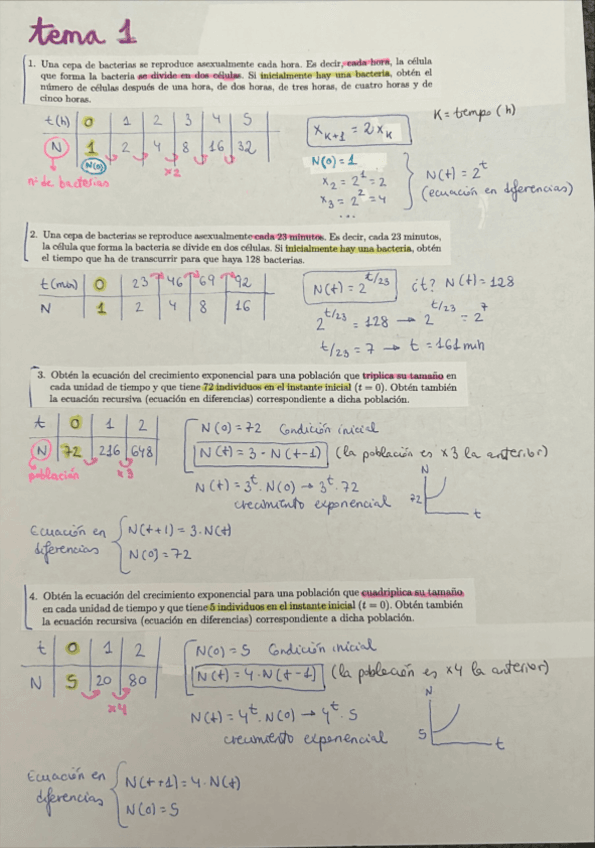 tema 1
1. Una cepa de bacterias se reproduce asexualmente cada hora. Es decir, cada hora, la célula
que forma la bacteria se divide en dos células. Si inicialmente hay una bacteria, obtén el
número de células después de una hora, de dos horas, de tres horas, de cuatro horas y de
cinco horas.
K = tiempo (h)
t(h) 0 1 2 3 4 5
N 1 2 4 8 16 32
N(0)
x2
nº de bacterias
x_{k+1} = 2x_k
N(0) = 1
x_2 = 2^1 = 2
x_3 = 2^2 = 4
...
N(t) = 2^t
(ecuación en diferencias)
2. Una cepa de bacterias se reproduce asexualmente cada 23 minutos. Es decir, cada 23 minutos,
la célula que forma la bacteria se divide en dos células. Si inicialmente hay una bacteria, obtén
el tiempo que ha de transcurrir para que haya 128 bacterias.
t(min) 0 23 46 69 92
N 1 2 4 8 16
N(t) = 2^{t/23} ¿t? N(t) = 128
2^{t/23} = 128 → 2^{t/23} = 2^7
t/23 = 7 → t = 161 min
3. Obtén la ecuación del crecimiento exponencial para una población que triplica su tamaño en
cada unidad de tiempo y que tiene 72 individuos en el instante inicial (t = 0). Obtén también
la ecuación recursiva (ecuación en diferencias) correspondiente a dicha población.
t 0 1 2
N 72 216 648
población x3
N(0) = 72 Condición inicial
N(t) = 3 · N(t-1) (la población es x3 la anterior)
N(t) = 3^t · N(0) → 3^t · 72
crecimiento exponencial
N
72
t
Ecuación en diferencias
N(t+1) = 3 · N(t)
N(0) = 72
4. Obtén la ecuación del crecimiento exponencial para una población que cuadriplica su tamaño
en cada unidad de tiempo y que tiene 5 individuos en el instante inicial (t = 0). Obtén también
la ecuación recursiva (ecuación en diferencias) correspondiente a dicha población.
t 0 1 2
N 5 20 80
x4
N(0) = 5 Condición inicial
N(t) = 4 · N(t-1) (la población es x4 la anterior)
N(t) = 4^t · N(0) → 4^t · 5
crecimiento exponencial
N
5
t
Ecuación en diferencias
N(t+1) = 4 · N(t)
N(0) = 5